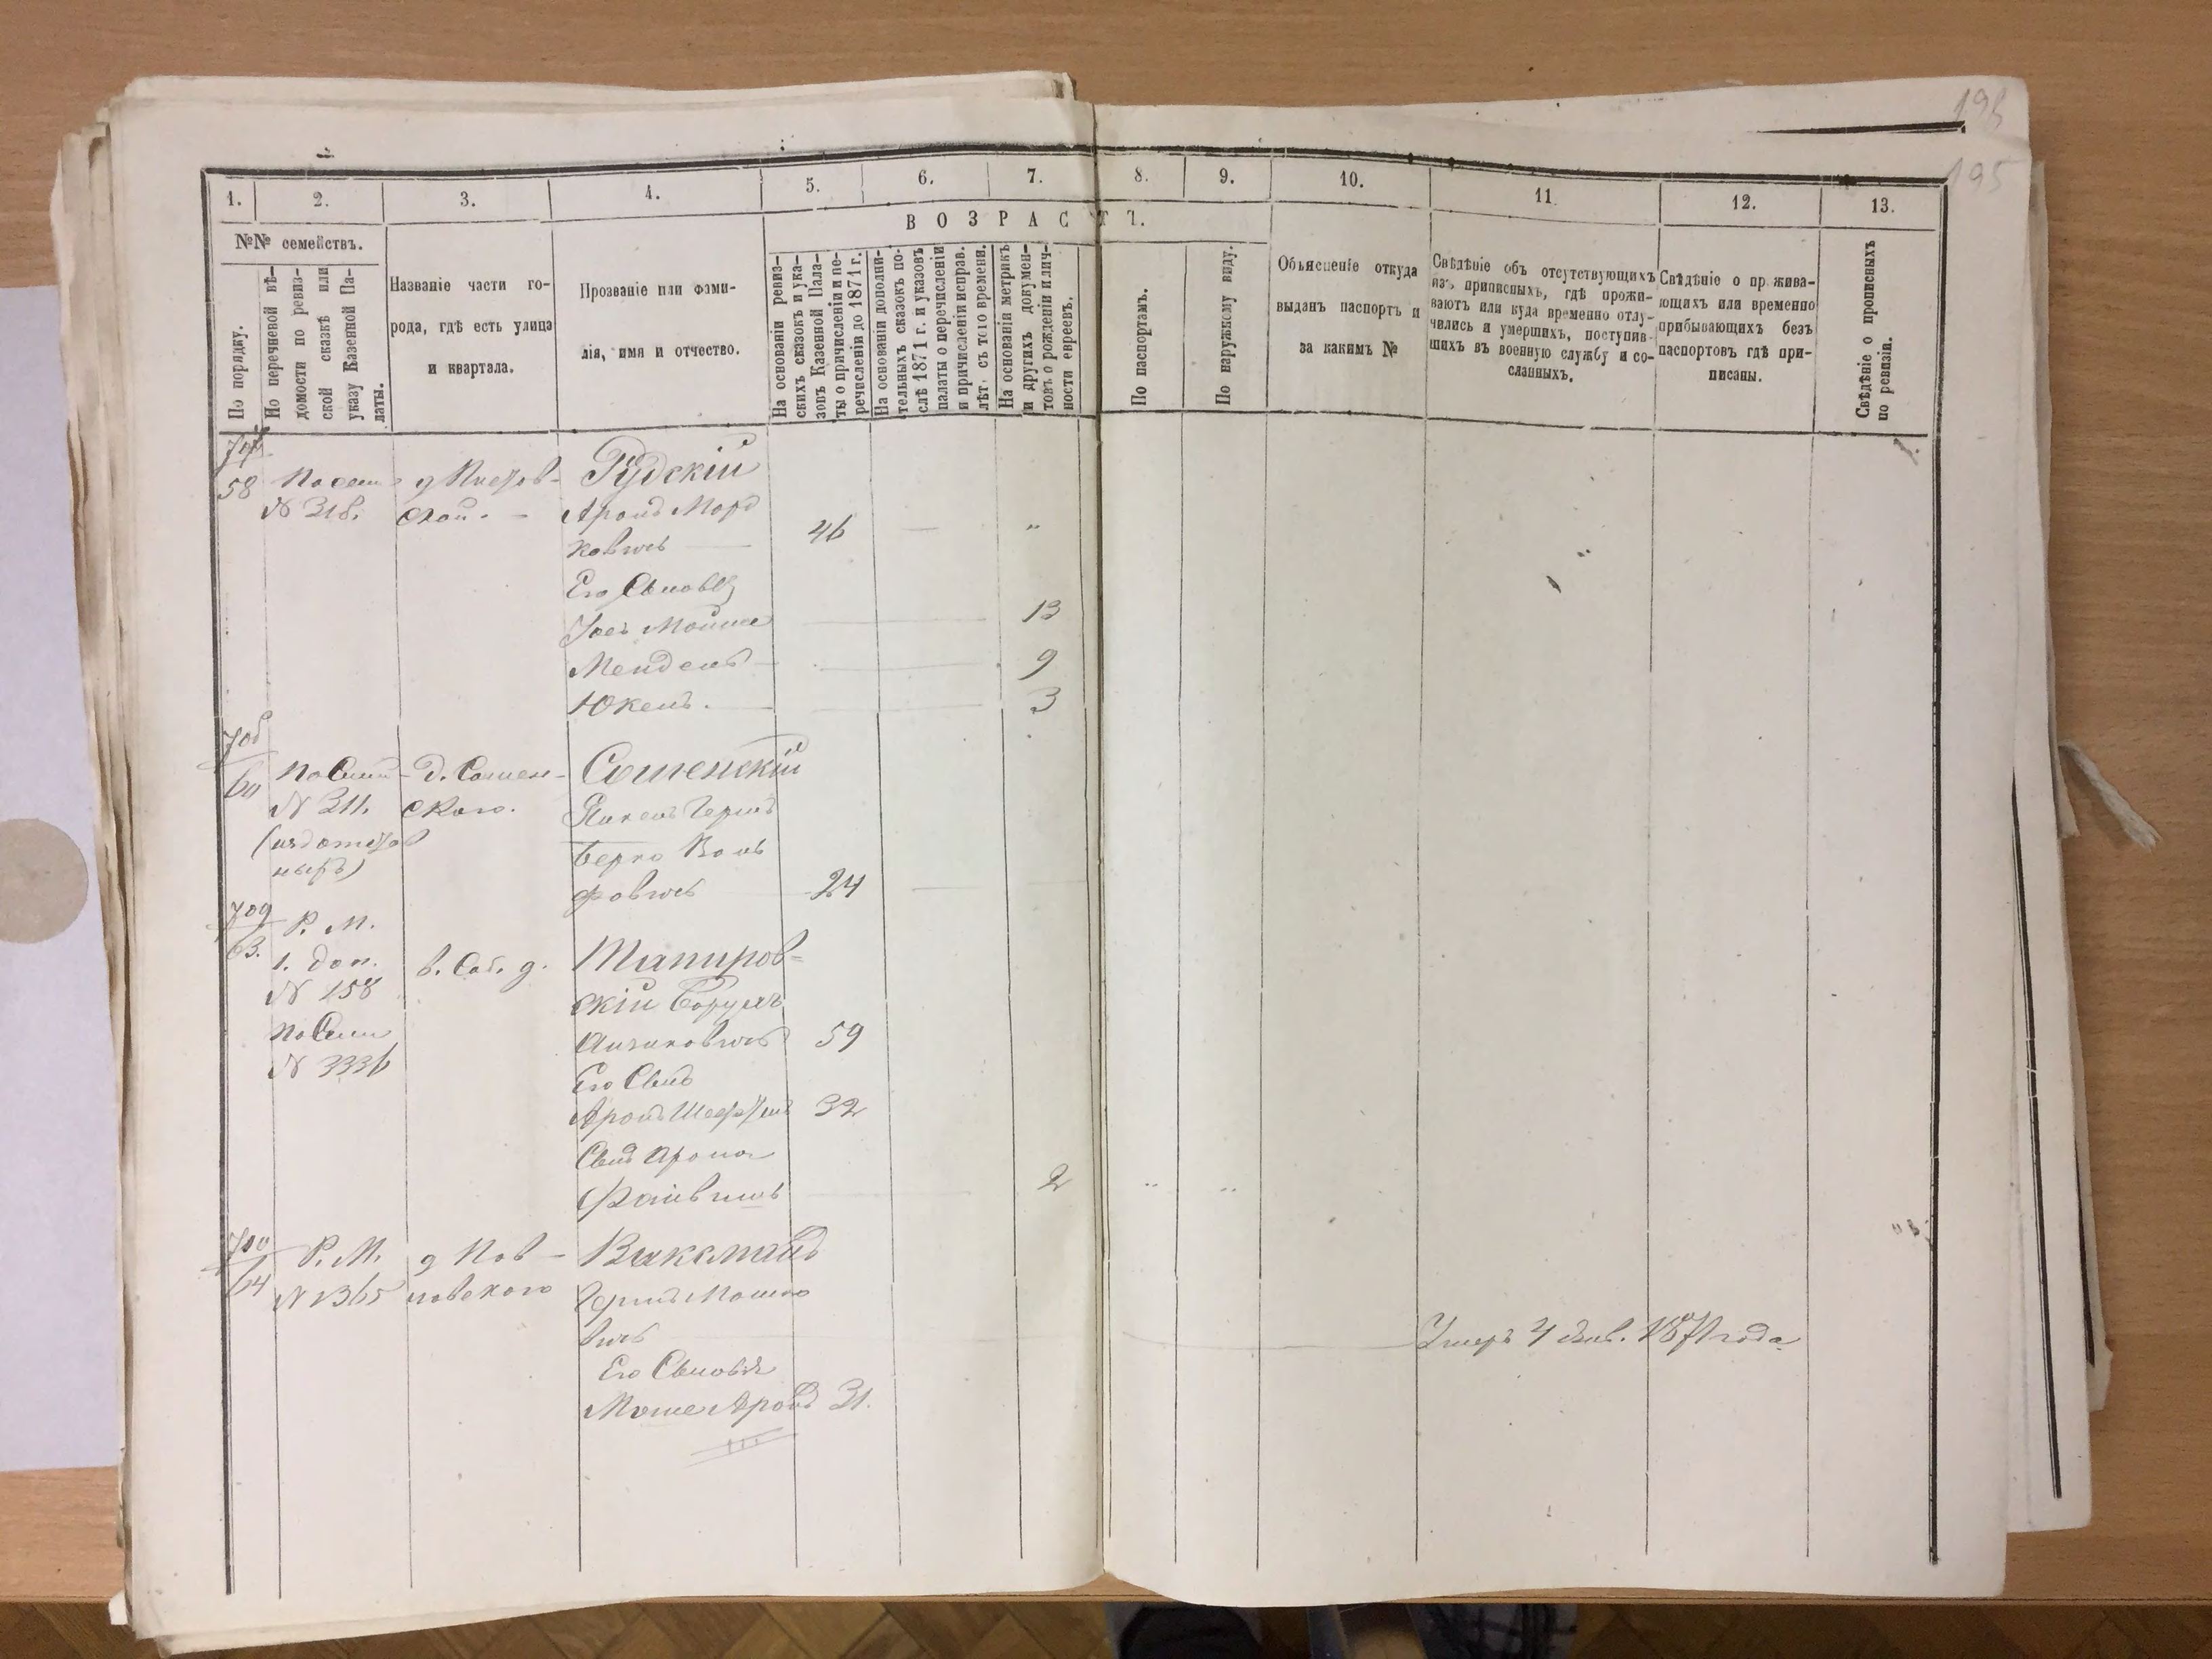 195
1. 2. 3. 4. 5. 6. 7. 8. 9. 10. 11. 12. 13.
№№ семействъ.
По порядку.
По перечневой вѣ-
домости по ревиз-
ской сказкѣ или
указу Казенной Па-
латы.
Названіе части го-
рода, гдѣ есть улица
и квартала.
Прозваніе или фами-
лія, имя и отчество.
ВОЗРАСТЪ.
На основаніи ревиз-
скихъ сказокъ и ука-
зовъ Казенной Пала-
ты о причисленіи и пе-
речисленіи до 1871 г.
На основаніи дополни-
тельныхъ сказокъ по-
слѣ 1871 г. и указовъ
палаты о перечисленіи
и причисленіи исправ.
лѣт. съ того времени.
На основаніи метрикъ
и другихъ докумен-
товъ о рожденіи и лич-
ности евреевъ.
По паспортамъ.
По наружному виду.
Объясненіе откуда
выданъ паспортъ и
за какимъ №
Свѣдѣніе объ отсутствующихъ
изъ приписныхъ, гдѣ прожи-
ваютъ или куда временно отлу-
чились и умершихъ, поступив-
шихъ въ военную службу и со-
сланныхъ.
Свѣдѣніе о прожива-
ющихъ или временно
прибывающихъ безъ
паспортовъ гдѣ при-
писаны.
Свѣдѣніе о прописныхъ
по ревизіи.
58 N 318. Рудскій
Аронъ Морд
ковичъ 46 — "
Его Сыновья
Мойше 13
Мендель 9
Юкель. 3
708
60 д. Сошен- Сошенскій
N 311. скаго. Янкель Гершъ
Берко Воль
фовичъ 24
709
63. Р. М.
1. доп. в. Соб. д. Шапиров-
N 158 скій Борухъ
Айзиковичъ 59
N 3336 Его Сынъ
Аронъ 32
Сынъ Арона
Файвишъ 2
710
64 Р. М. Ваксманъ
N 1365 Гершъ Мошко
вичъ Умеръ 4 1871 года
Его Сыновья
Моше Аронъ 31.